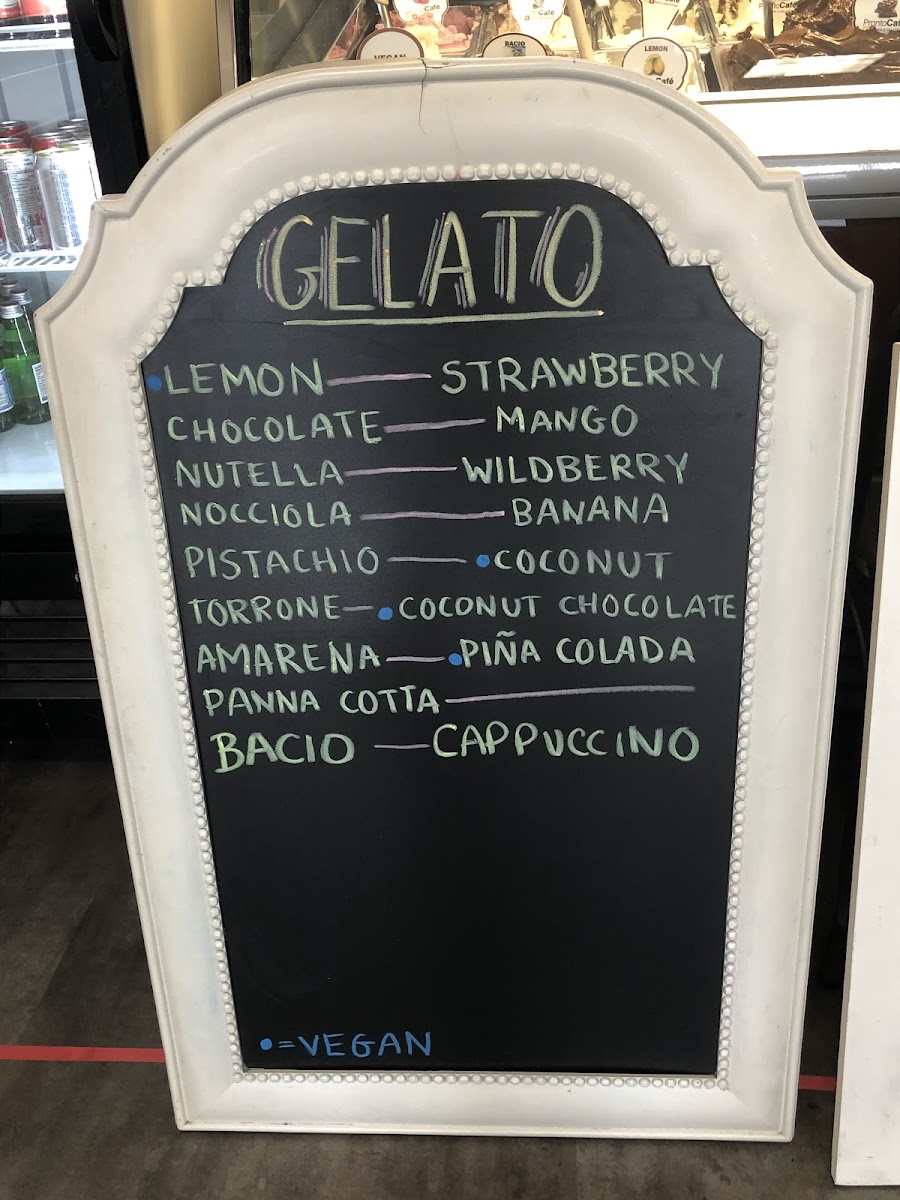 VEGAN
BACIO
LEMON
Café
ProntoCafé
GELATO
•LEMON — STRAWBERRY
CHOCOLATE — MANGO
NUTELLA — WILDBERRY
NOCCIOLA — BANANA
PISTACHIO — •COCONUT
TORRONE — •COCONUT CHOCOLATE
AMARENA — •PIÑA COLADA
PANNA COTTA —
BACIO — CAPPUCCINO
•=VEGAN